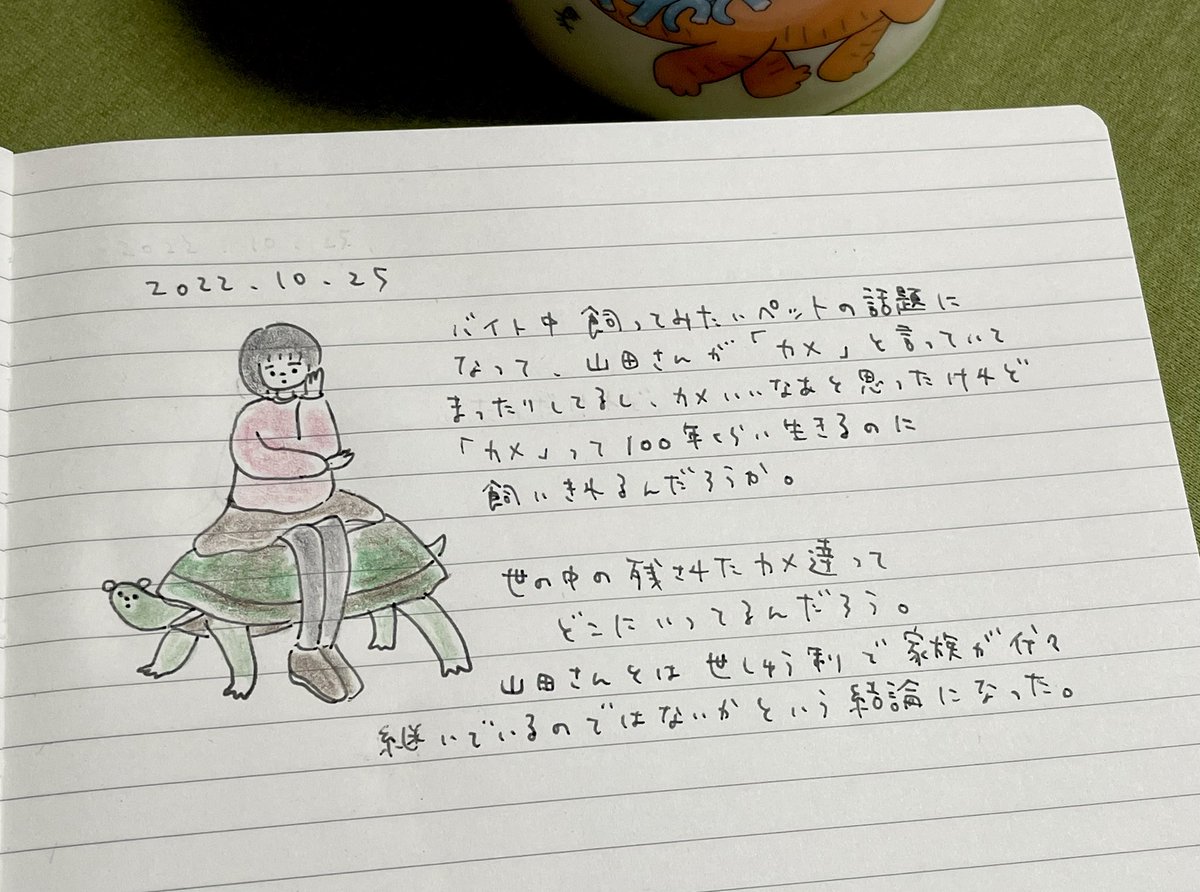 2022.10.25
バイト中 飼ってみたいペットの話題に
なって、山田さんが「カメ」と言っていて
まったりしてるし、カメいいなあと思ったけれど
「カメ」って100年くらい生きるのに
飼いきれるんだろうか。
世の中の残されたカメ達って
どこにいってるんだろう。
山田さんとは世しゅう制で家族が代々
継いでいるのではないかという結論になった。